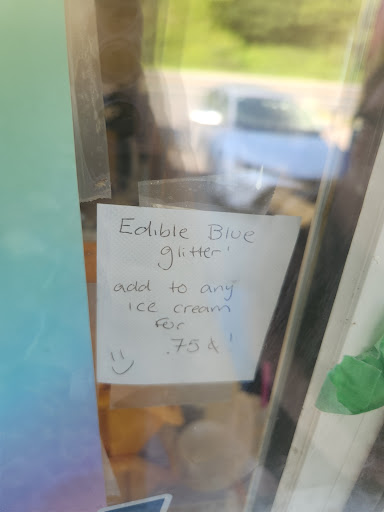 Edible Blue
glitter!
add to any
ice cream
for
.75¢!